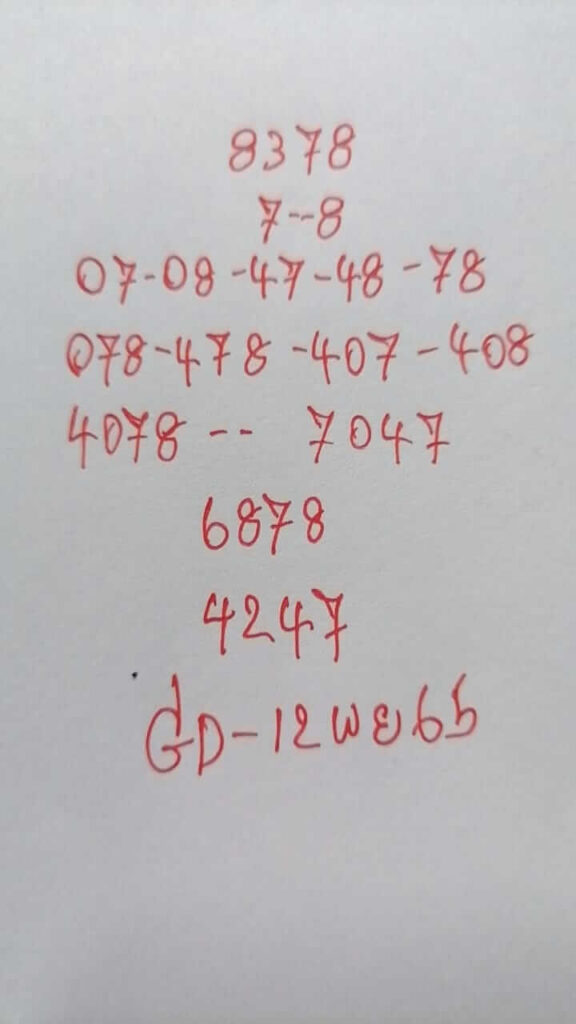 8378
7--8
07-08-47-48-78
078-478-407-408
4078-- 7047
6878
4247
GD-12พย65